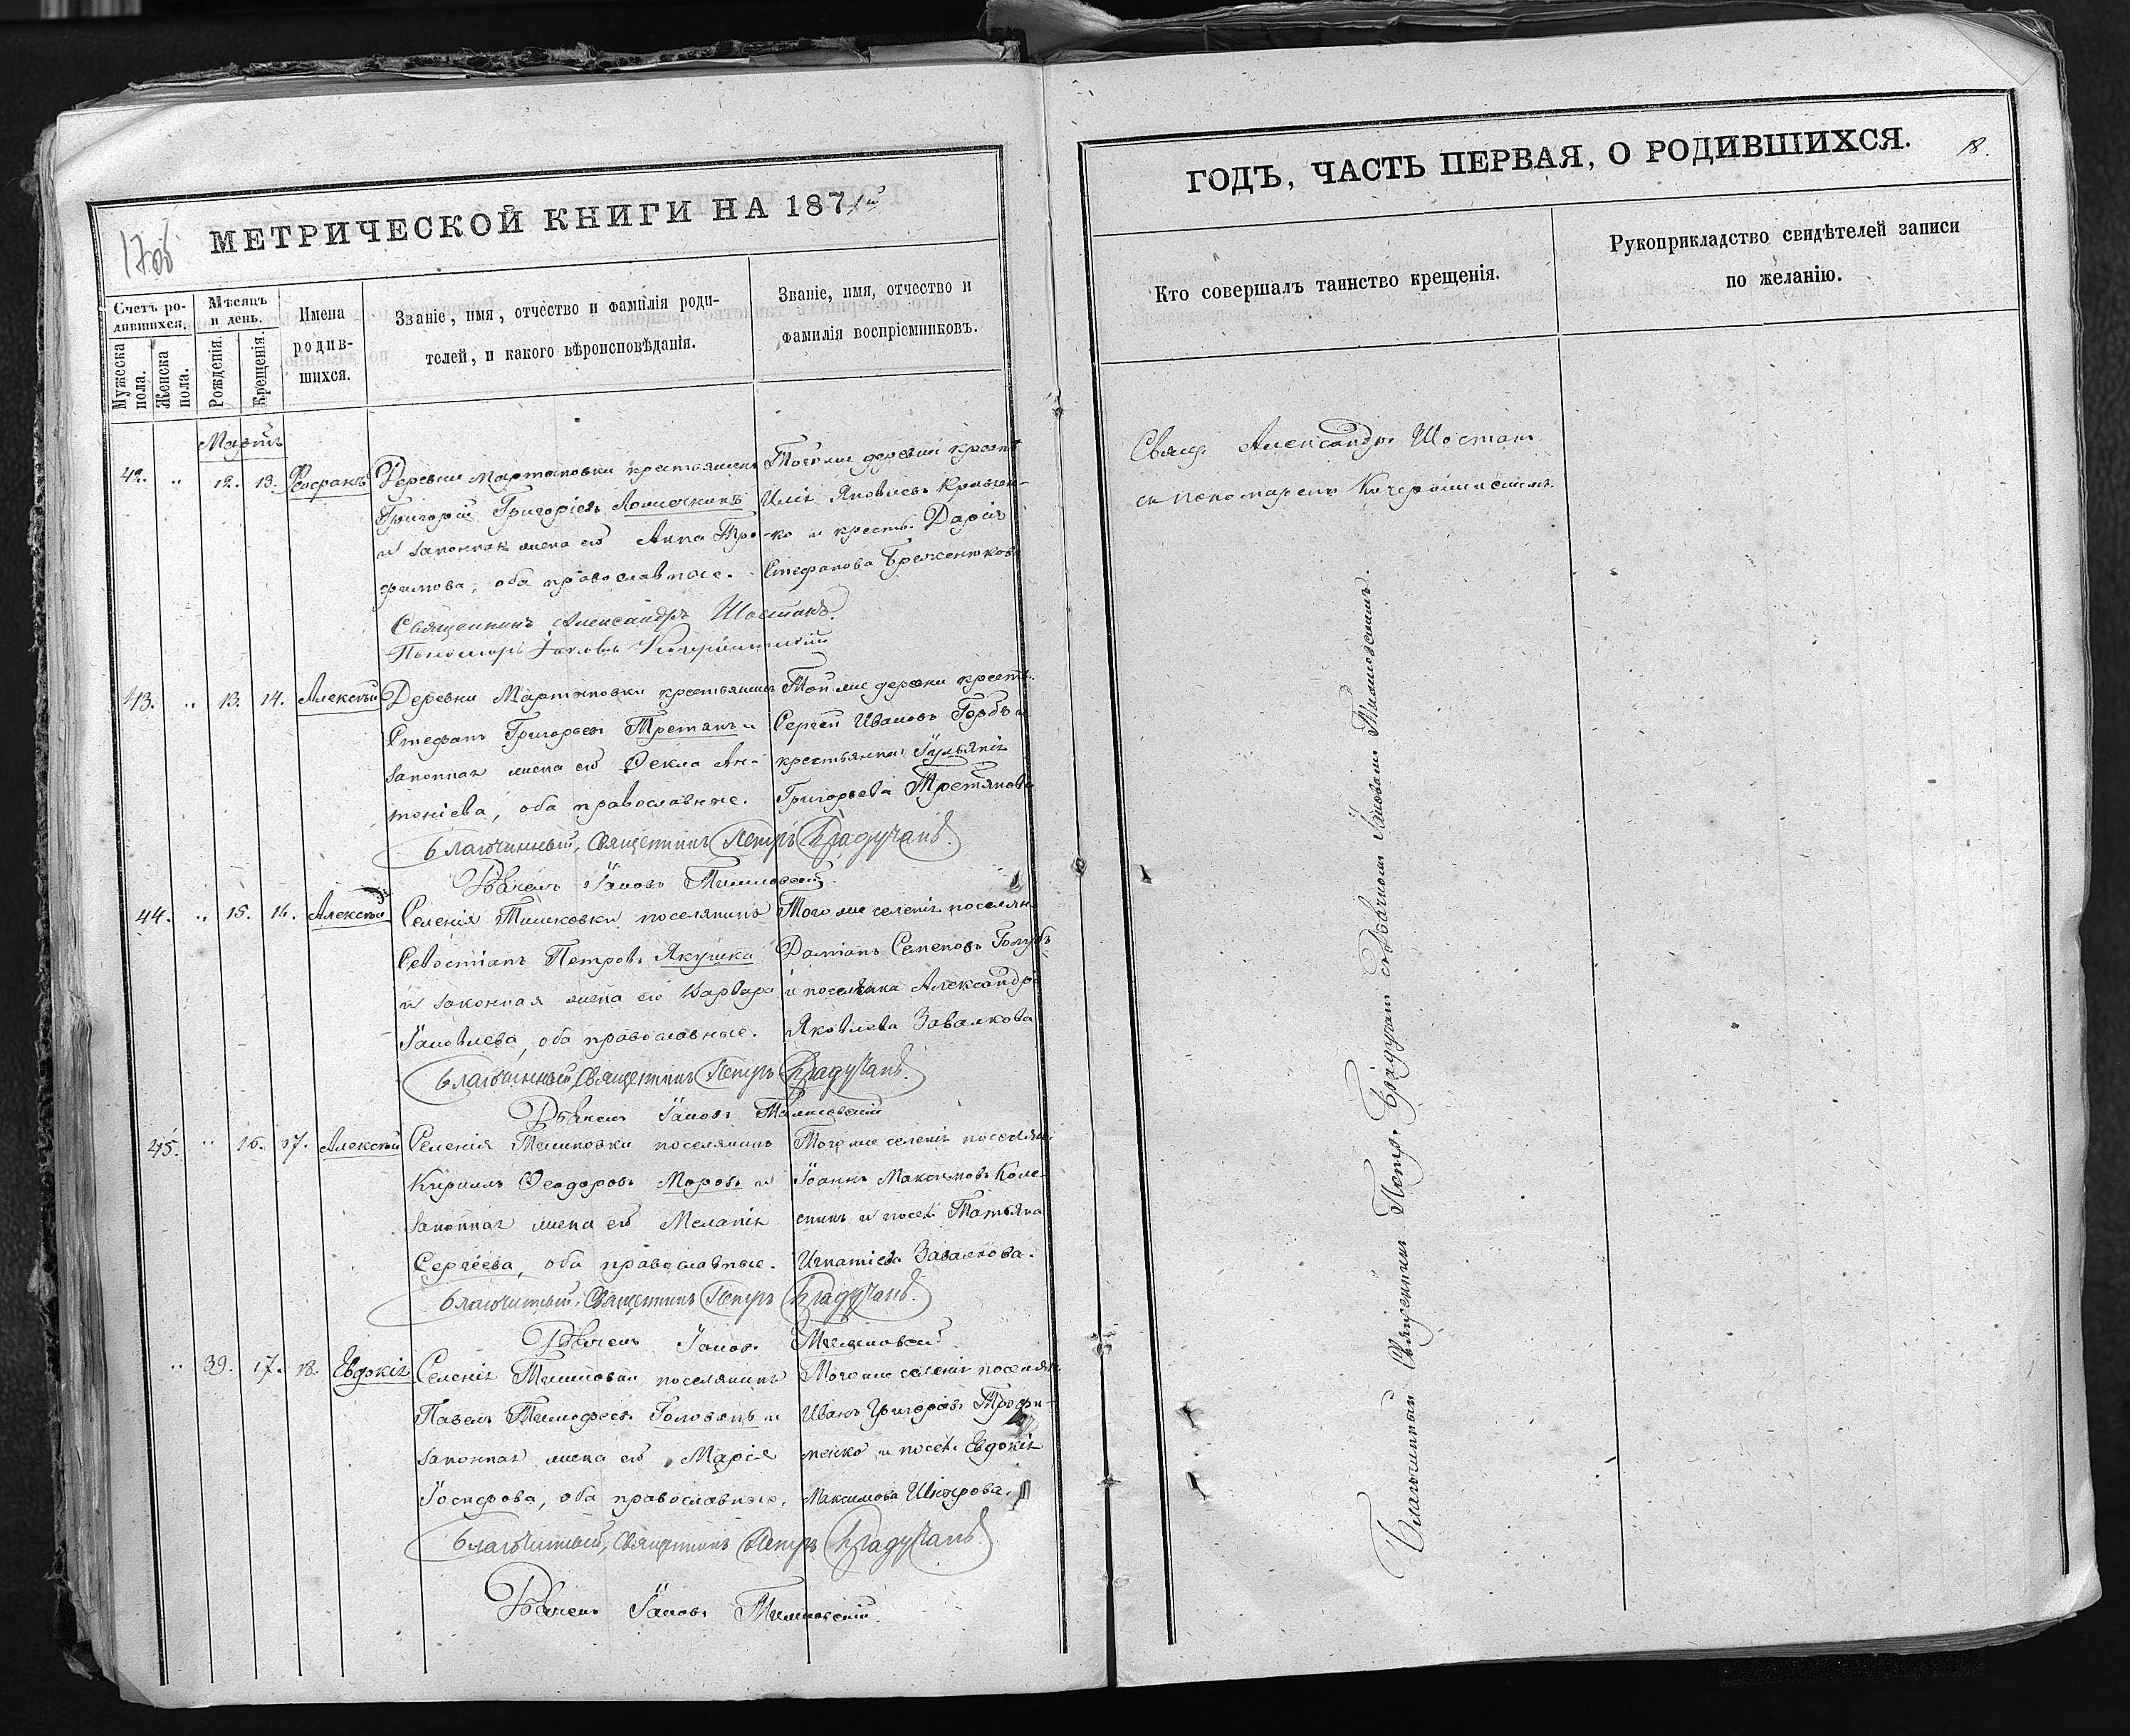 МЕТРИЧЕСКОЙ КНИГИ НА 1871й
Счетъ ро-
дившихся.
Мужеска пола.
Женска пола.
Мѣсяцъ
и день.
Рожденія.
Крещенія.
Имена
родив-
шихся.
Званіе, имя, отчество и фамилія роди-
телей, и какого вѣроисповѣданія.
Званіе, имя, отчество и
фамилія воспріемниковъ.
Мартъ
42. „ 12. 13.
Деревни Мартоновки крестьянинъ
Григорій Григоріевъ
и законная жена его Анна Тро-
фимова, оба православные.
Тойже деревни крест.
Илія Яковлевъ
-ко и крест. Дарія
Стефанова
Священникъ Александръ Шостакъ.
Пономарь Іаковъ
43. „ 13. 14. Алексѣй
Деревни Мартоновки крестьянинъ
Стефанъ Григорьевъ Третякъ и
законная жена его Ѳекла Ан-
тоніева, оба православные.
Тойже деревни крест.
Сергѣй Ивановъ Горбъ и
крестьянка Іуліанія
Григорьева Третякова
Благочинный, Священникъ Петръ Брадучанъ.
Дьячекъ Іаковъ
44. „ 15. 16. Алексѣй
Селенія Тишковки поселянинъ
Севостіанъ Петровъ Якушка
и законная жена его Варвара
Іаковлева, оба православные.
Того же селенія поселян.
Даміанъ Семеновъ Голубъ
и поселянка Александра
Яковлева Завалкова
Благочинный, Священникъ Петръ Брадучанъ.
Дьячекъ Іаковъ
45. „ 16. 17. Алексѣй
Селенія Тишковки поселянинъ
Кириллъ Ѳеодоровъ Морозъ и
законная жена его Меланія
Сергѣева, оба православные.
Того же селенія поселян.
Іоаннъ Максимовъ Коле-
сникъ и посел. Татьяна
Игнатіева Завалкова.
Благочинный, Священникъ Петръ Брадучанъ.
Дьячекъ Іаковъ
„ 39. 17. 18. Евдокія
Селенія Тишковки поселянинъ
Павелъ Тимофеевъ и
законная жена его Марія
Іосифова, оба православные.
Того же селенія поселян.
Иванъ Григорьевъ Трофи-
менко и посел. Евдокія
Максимова
Благочинный, Священникъ Петръ Брадучанъ.
Дьячекъ Іаковъ
ГОДЪ, ЧАСТЬ ПЕРВАЯ, О РОДИВШИХСЯ.
18.
Кто совершалъ таинство крещенія.
Рукоприкладство свидѣтелей записи
по желанію.
Свящ. Александръ Шостакъ
съ пономаремъ
Благочинный Священникъ Петръ Брадучанъ съ Дьячкомъ Іаковомъ